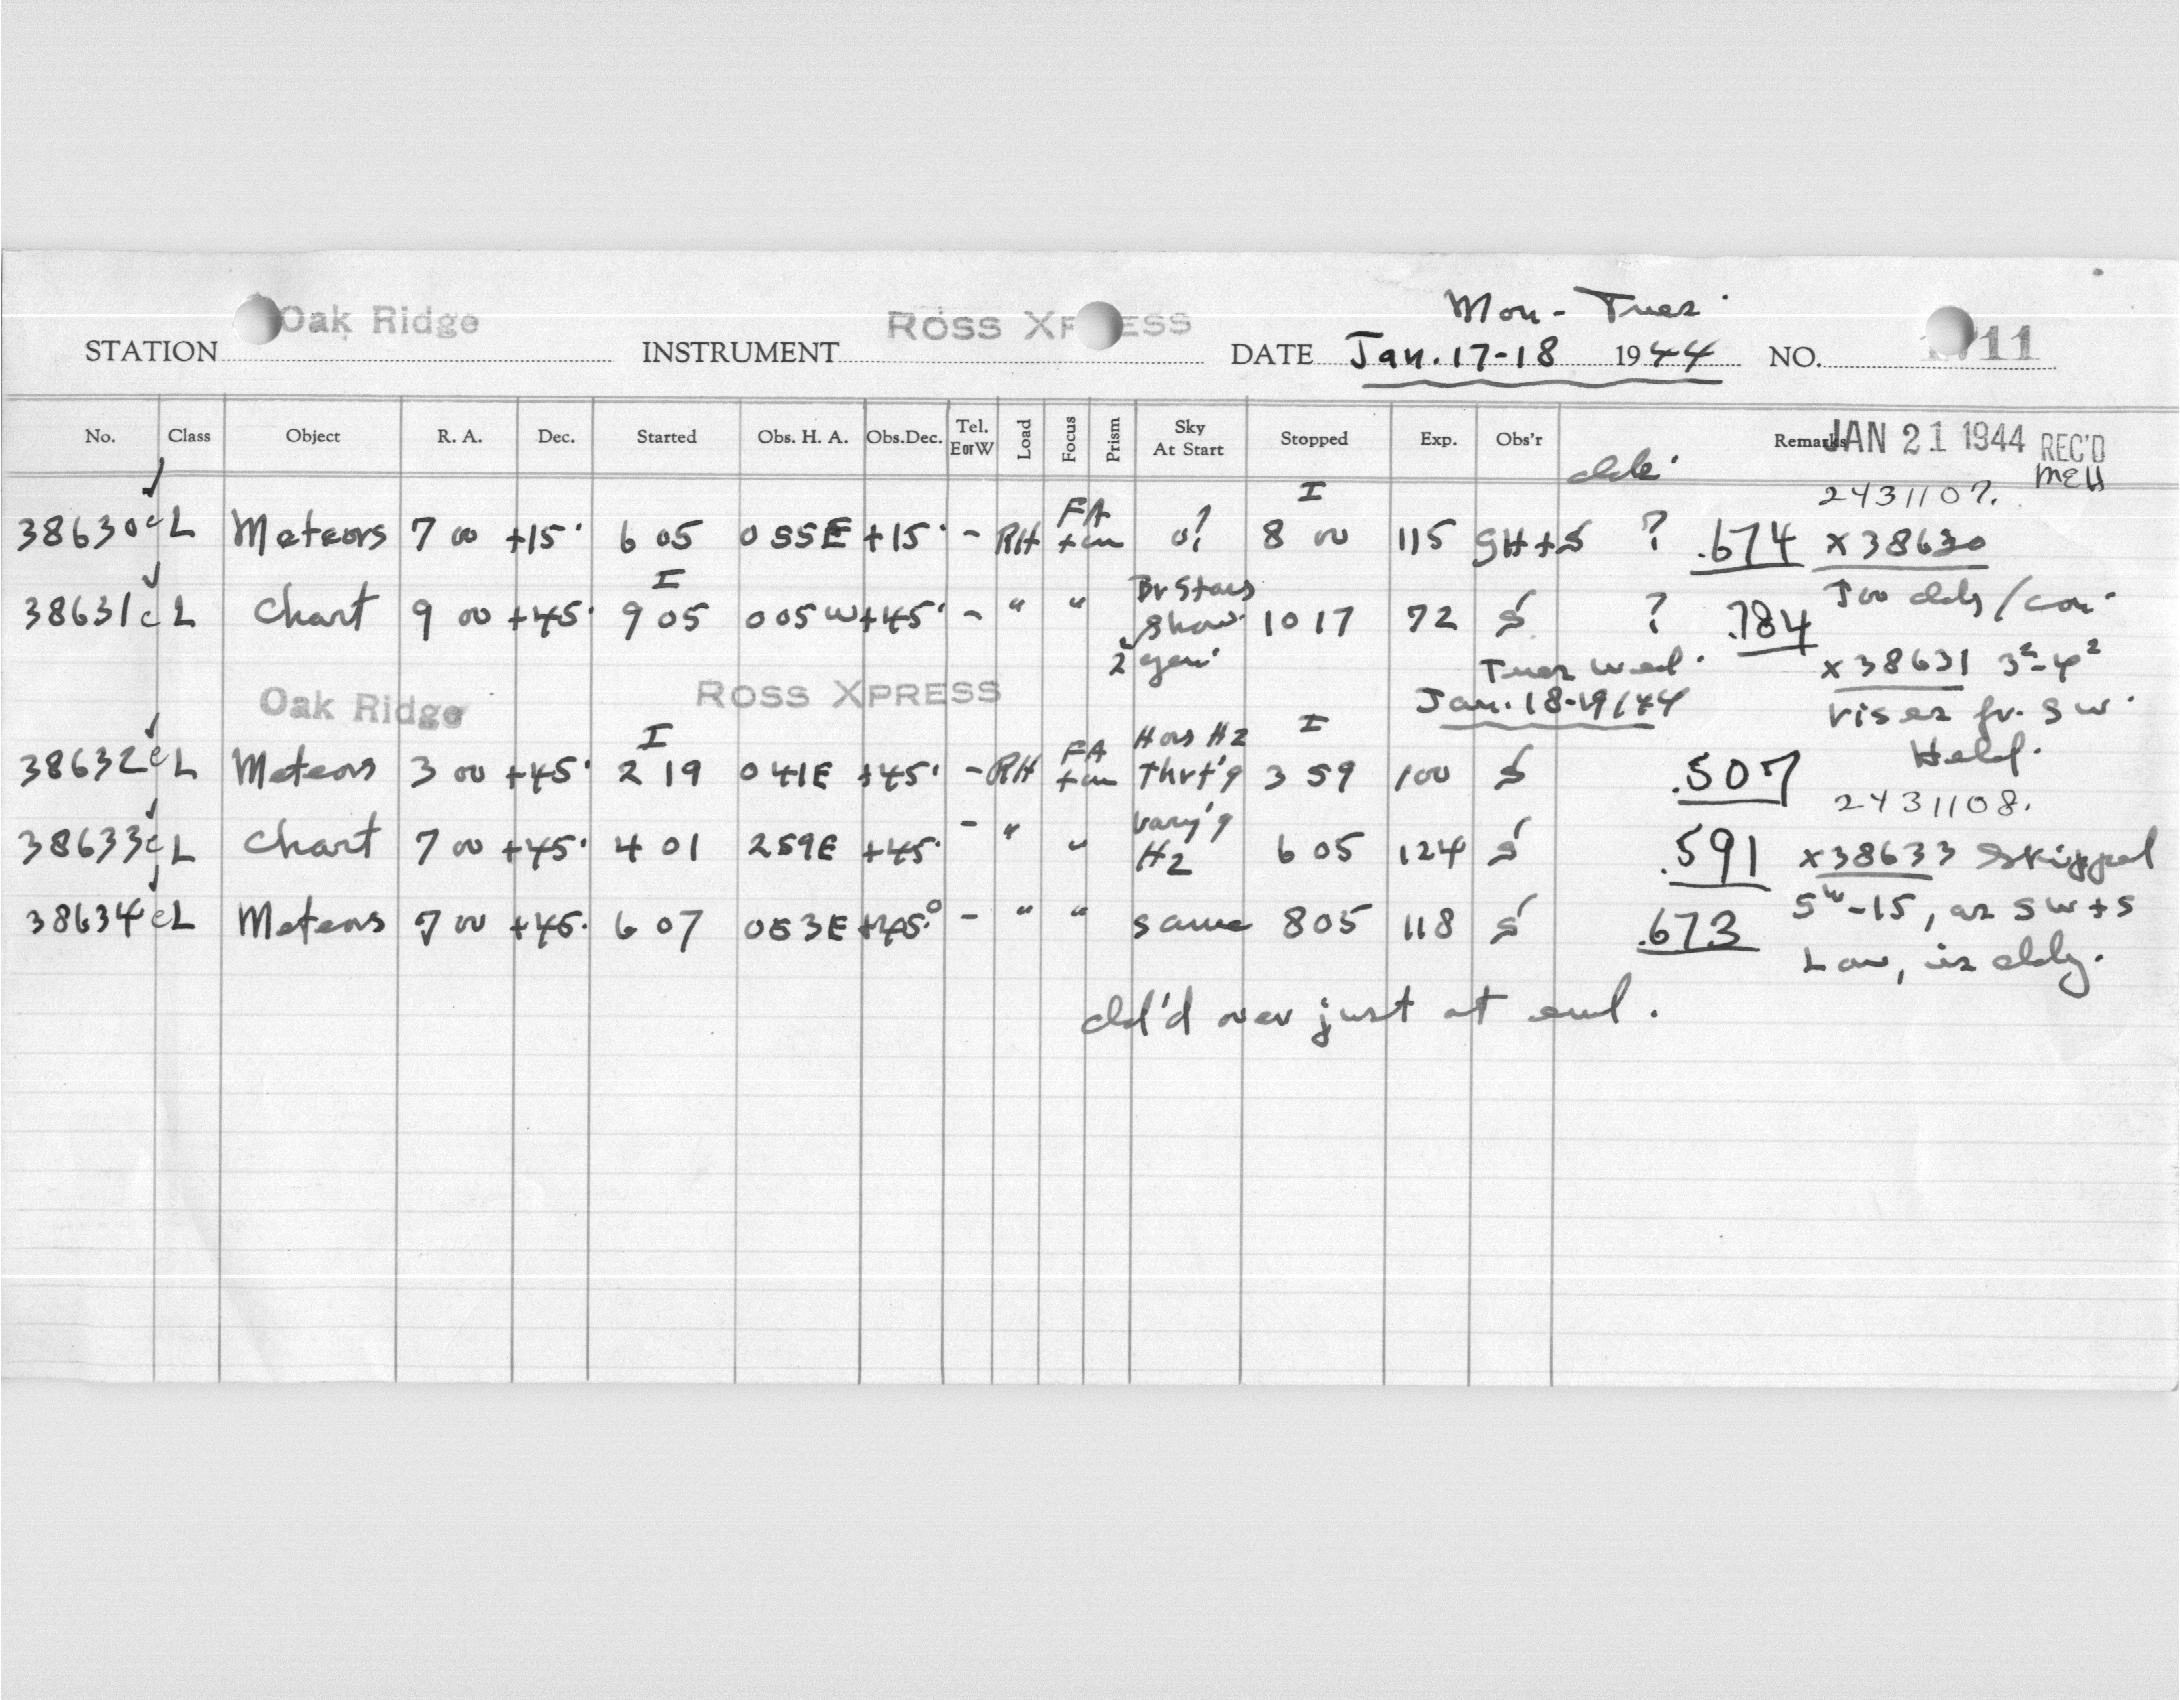 Mon - Tues.
STATION Oak Ridge INSTRUMENT ROSS XPRESS DATE Jan. 17-18 1944 NO. 11
No. Class Object R. A. Dec. Started Obs. H. A. Obs.Dec. Tel. E or W Load Focus Prism Sky At Start Stopped Exp. Obs'r Remarks JAN 21 1944 REC'D
MEH
2431107.
38630 c L Meteors 7 00 +15° 6 05 0 55E +15° - RH FA +cm 0? I 8 00 115 GH+S ? .674 x38630
38631 c L Chart 9 00 +45° I 9 05 0 05 W +45° - " " Br Stars Show 10 17 72 S ? .784 Too cldy/con.
2 gem. Tues Wed. x38631 3²-4²
Oak Ridge ROSS XPRESS Jan. 18-19/44 rises fr. SW.
Held.
38632 c L Meteors 3 00 +45° I 2 19 0 41E +45° - RH FA +cm Hors Hz Thrt'g I 3 59 100 S .507
2431108.
38633 c L Chart 7 00 +45° 4 01 2 59E +45° - " " Vary'g Hz 6 05 124 S .591 x38633 Skipped
38634 c L Meteors 7 00 +45° 6 07 0 53E +45° - " " same 8 05 118 S .673 5ᵐ-15, as SW+S
Low, is cldy.
cld'd over just at end.